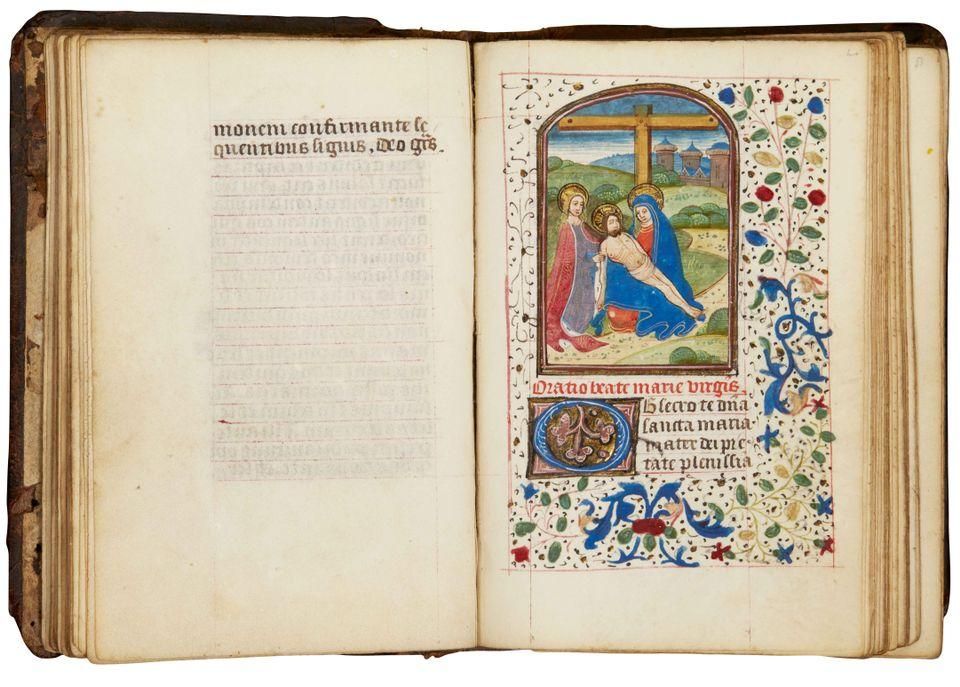 monem confirmante se
quentibus signis, Deo grīs.
Oratio beate marie virgīs.
Obsecro te dñā
sancta maria
mater dei pie
tate plenissīa